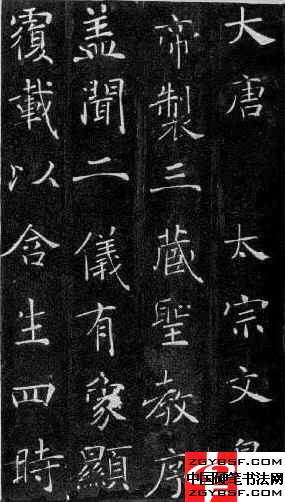 大唐 太宗文皇
帝製三藏聖教序
盖聞二儀有象顯
覆載以含生四時
ZGYBSF.COM
中国硬笔书法网
ZGYBSF.COM